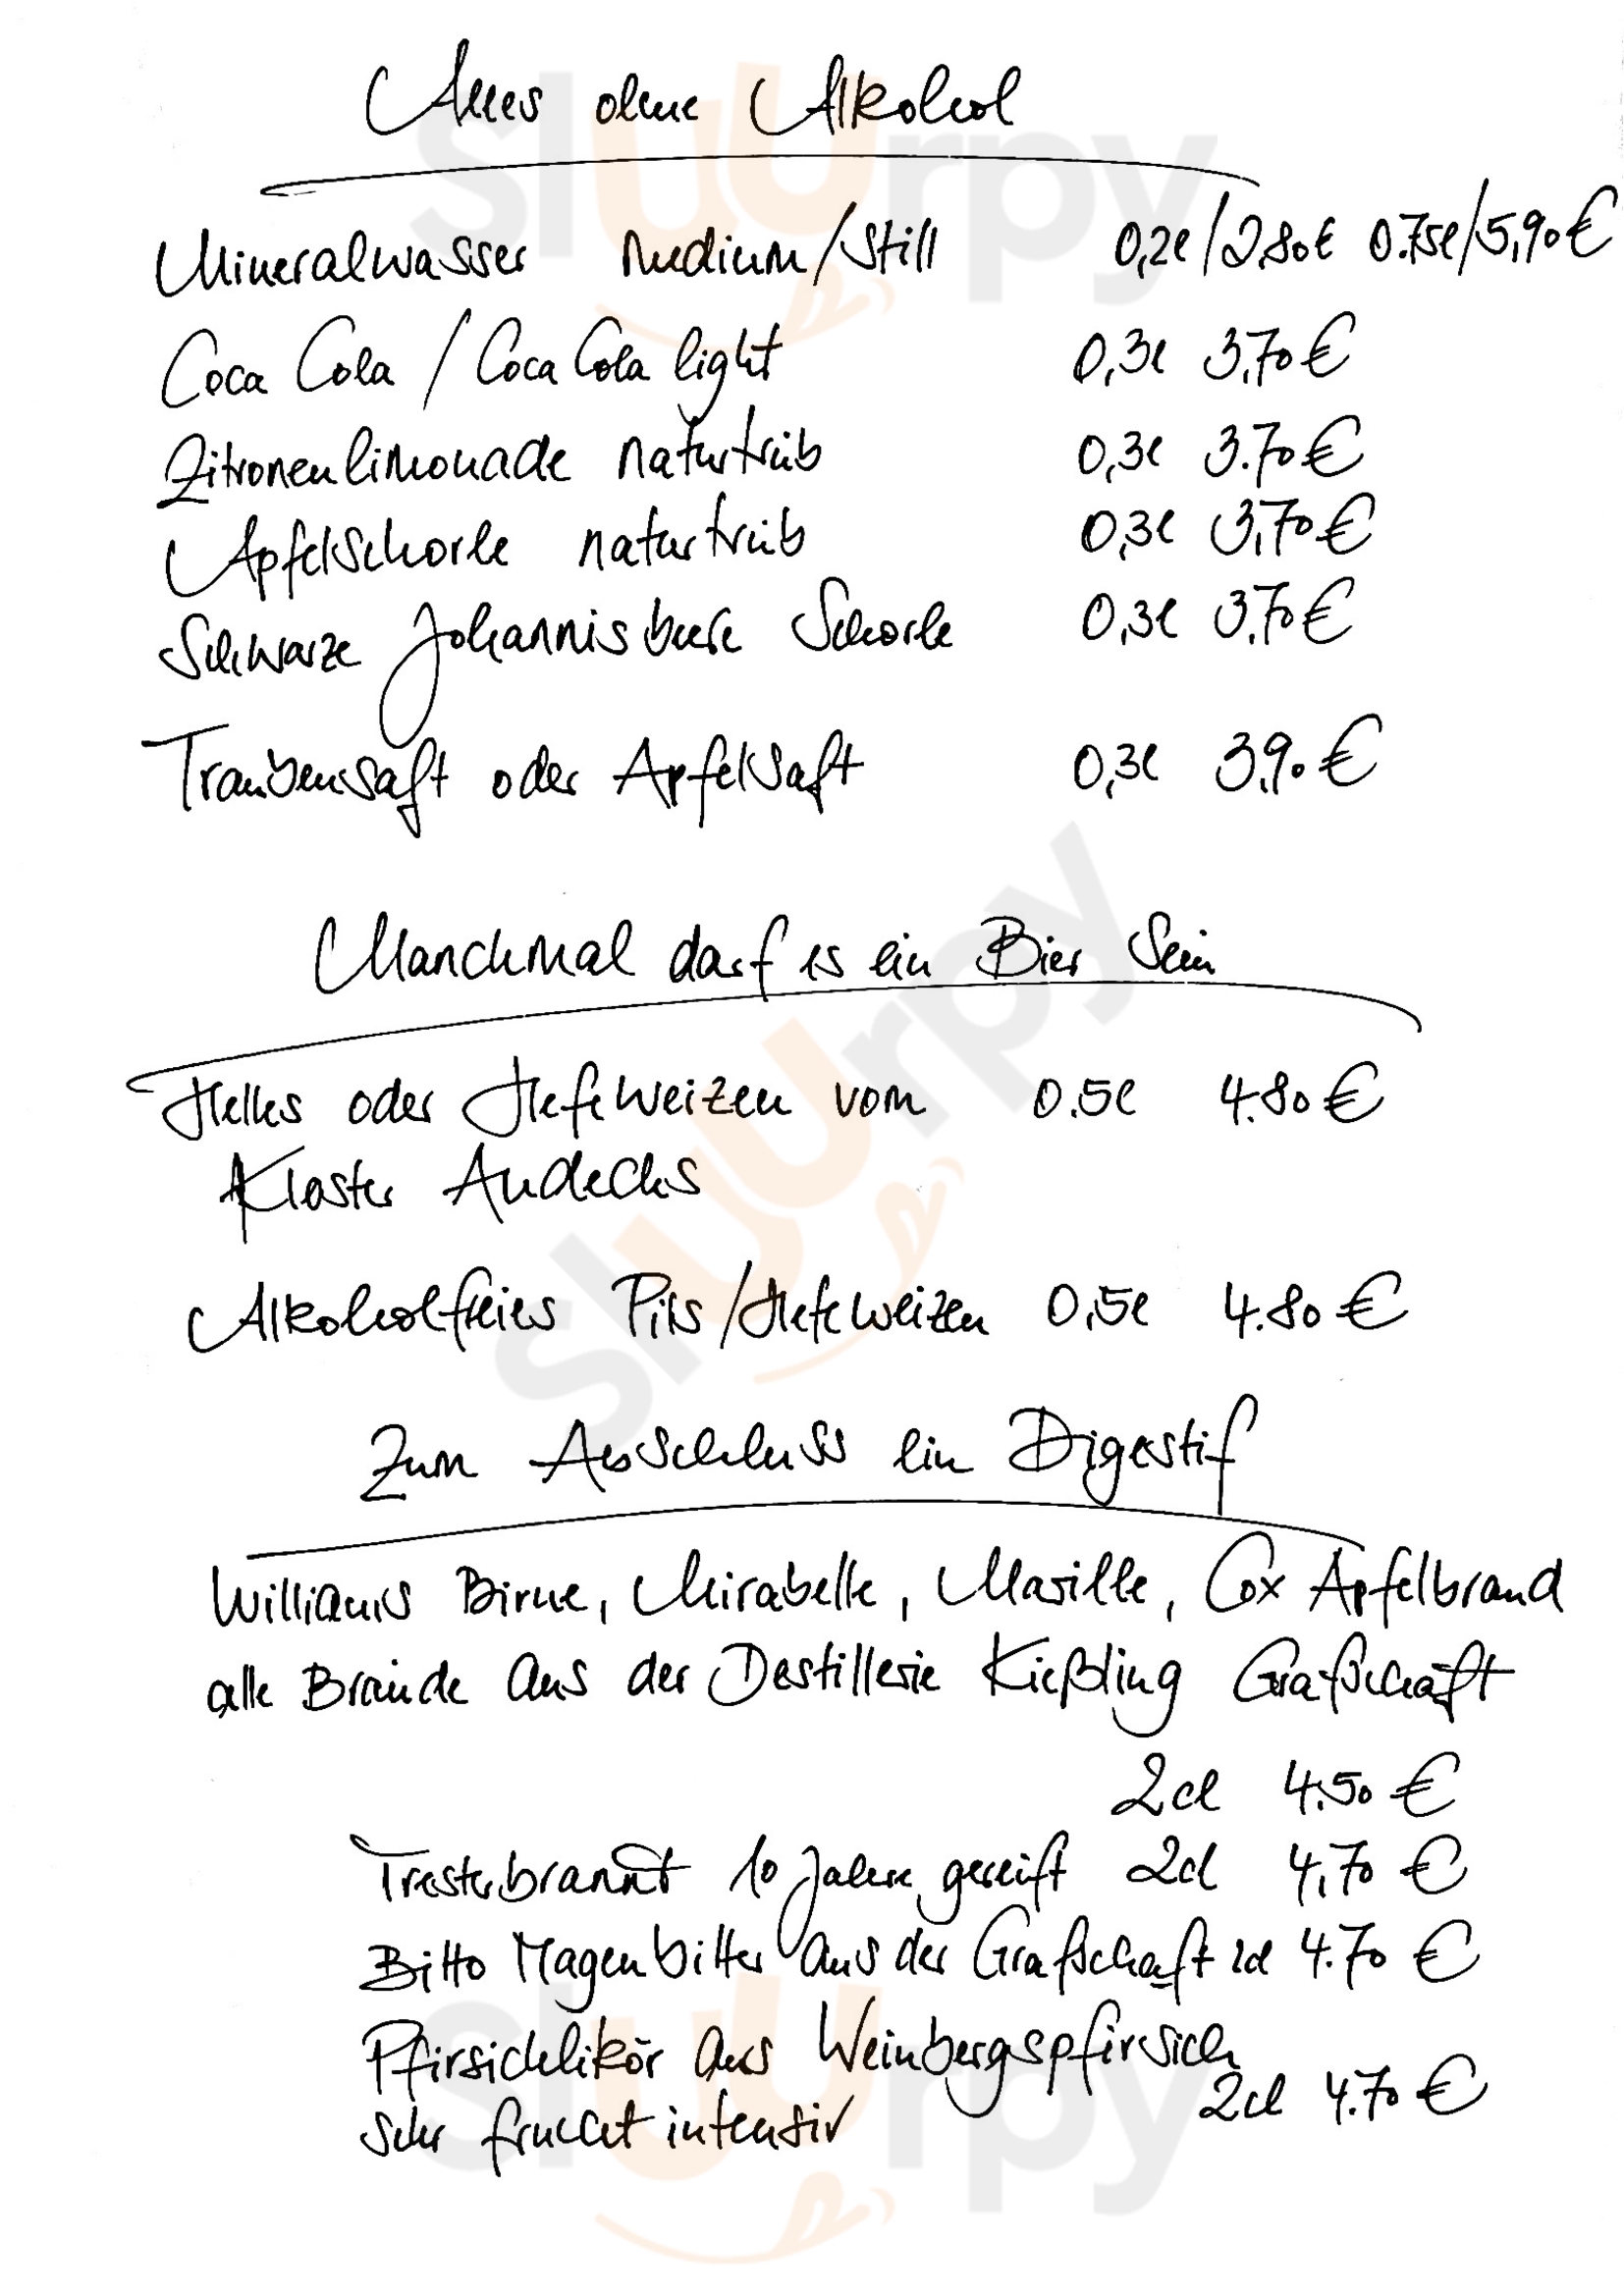 Alles ohne Alkohol
Mineralwasser Medium/Still 0,2l/2,80€ 0.75l/5,90€
Coca Cola / Coca Cola light 0,3l 3,70€
Zitronenlimonade naturtrüb 0,3l 3.70€
Apfelschorle naturtrüb 0,3l 3,70€
Schwarze Johannisbeere Schorle 0,3l 3,70€
Traubensaft oder Apfelsaft 0,3l 3,90€
Manchmal darf es ein Bier sein
Helles oder Hefeweizen vom 0.5l 4.80€
Kloster Andechs
Alkoholfreies Pils/Hefeweizen 0,5l 4.80€
Zum Abschluss ein Digestif
Williams Birne, Mirabelle, Marille, Cox Apfelbrand
alle Brände aus der Destillerie Kießling Grafschaft
2cl 4.50 €
Tresterbrannt 10 Jahre gereift 2cl 4,70 €
Bitto Magenbitter aus der Grafschaft 2cl 4.70 €
Pfirsichlikör aus Weinbergspfirsich
sehr frucht intensiv 2cl 4.70 €
sluurpy
sluurpy
sluurpy